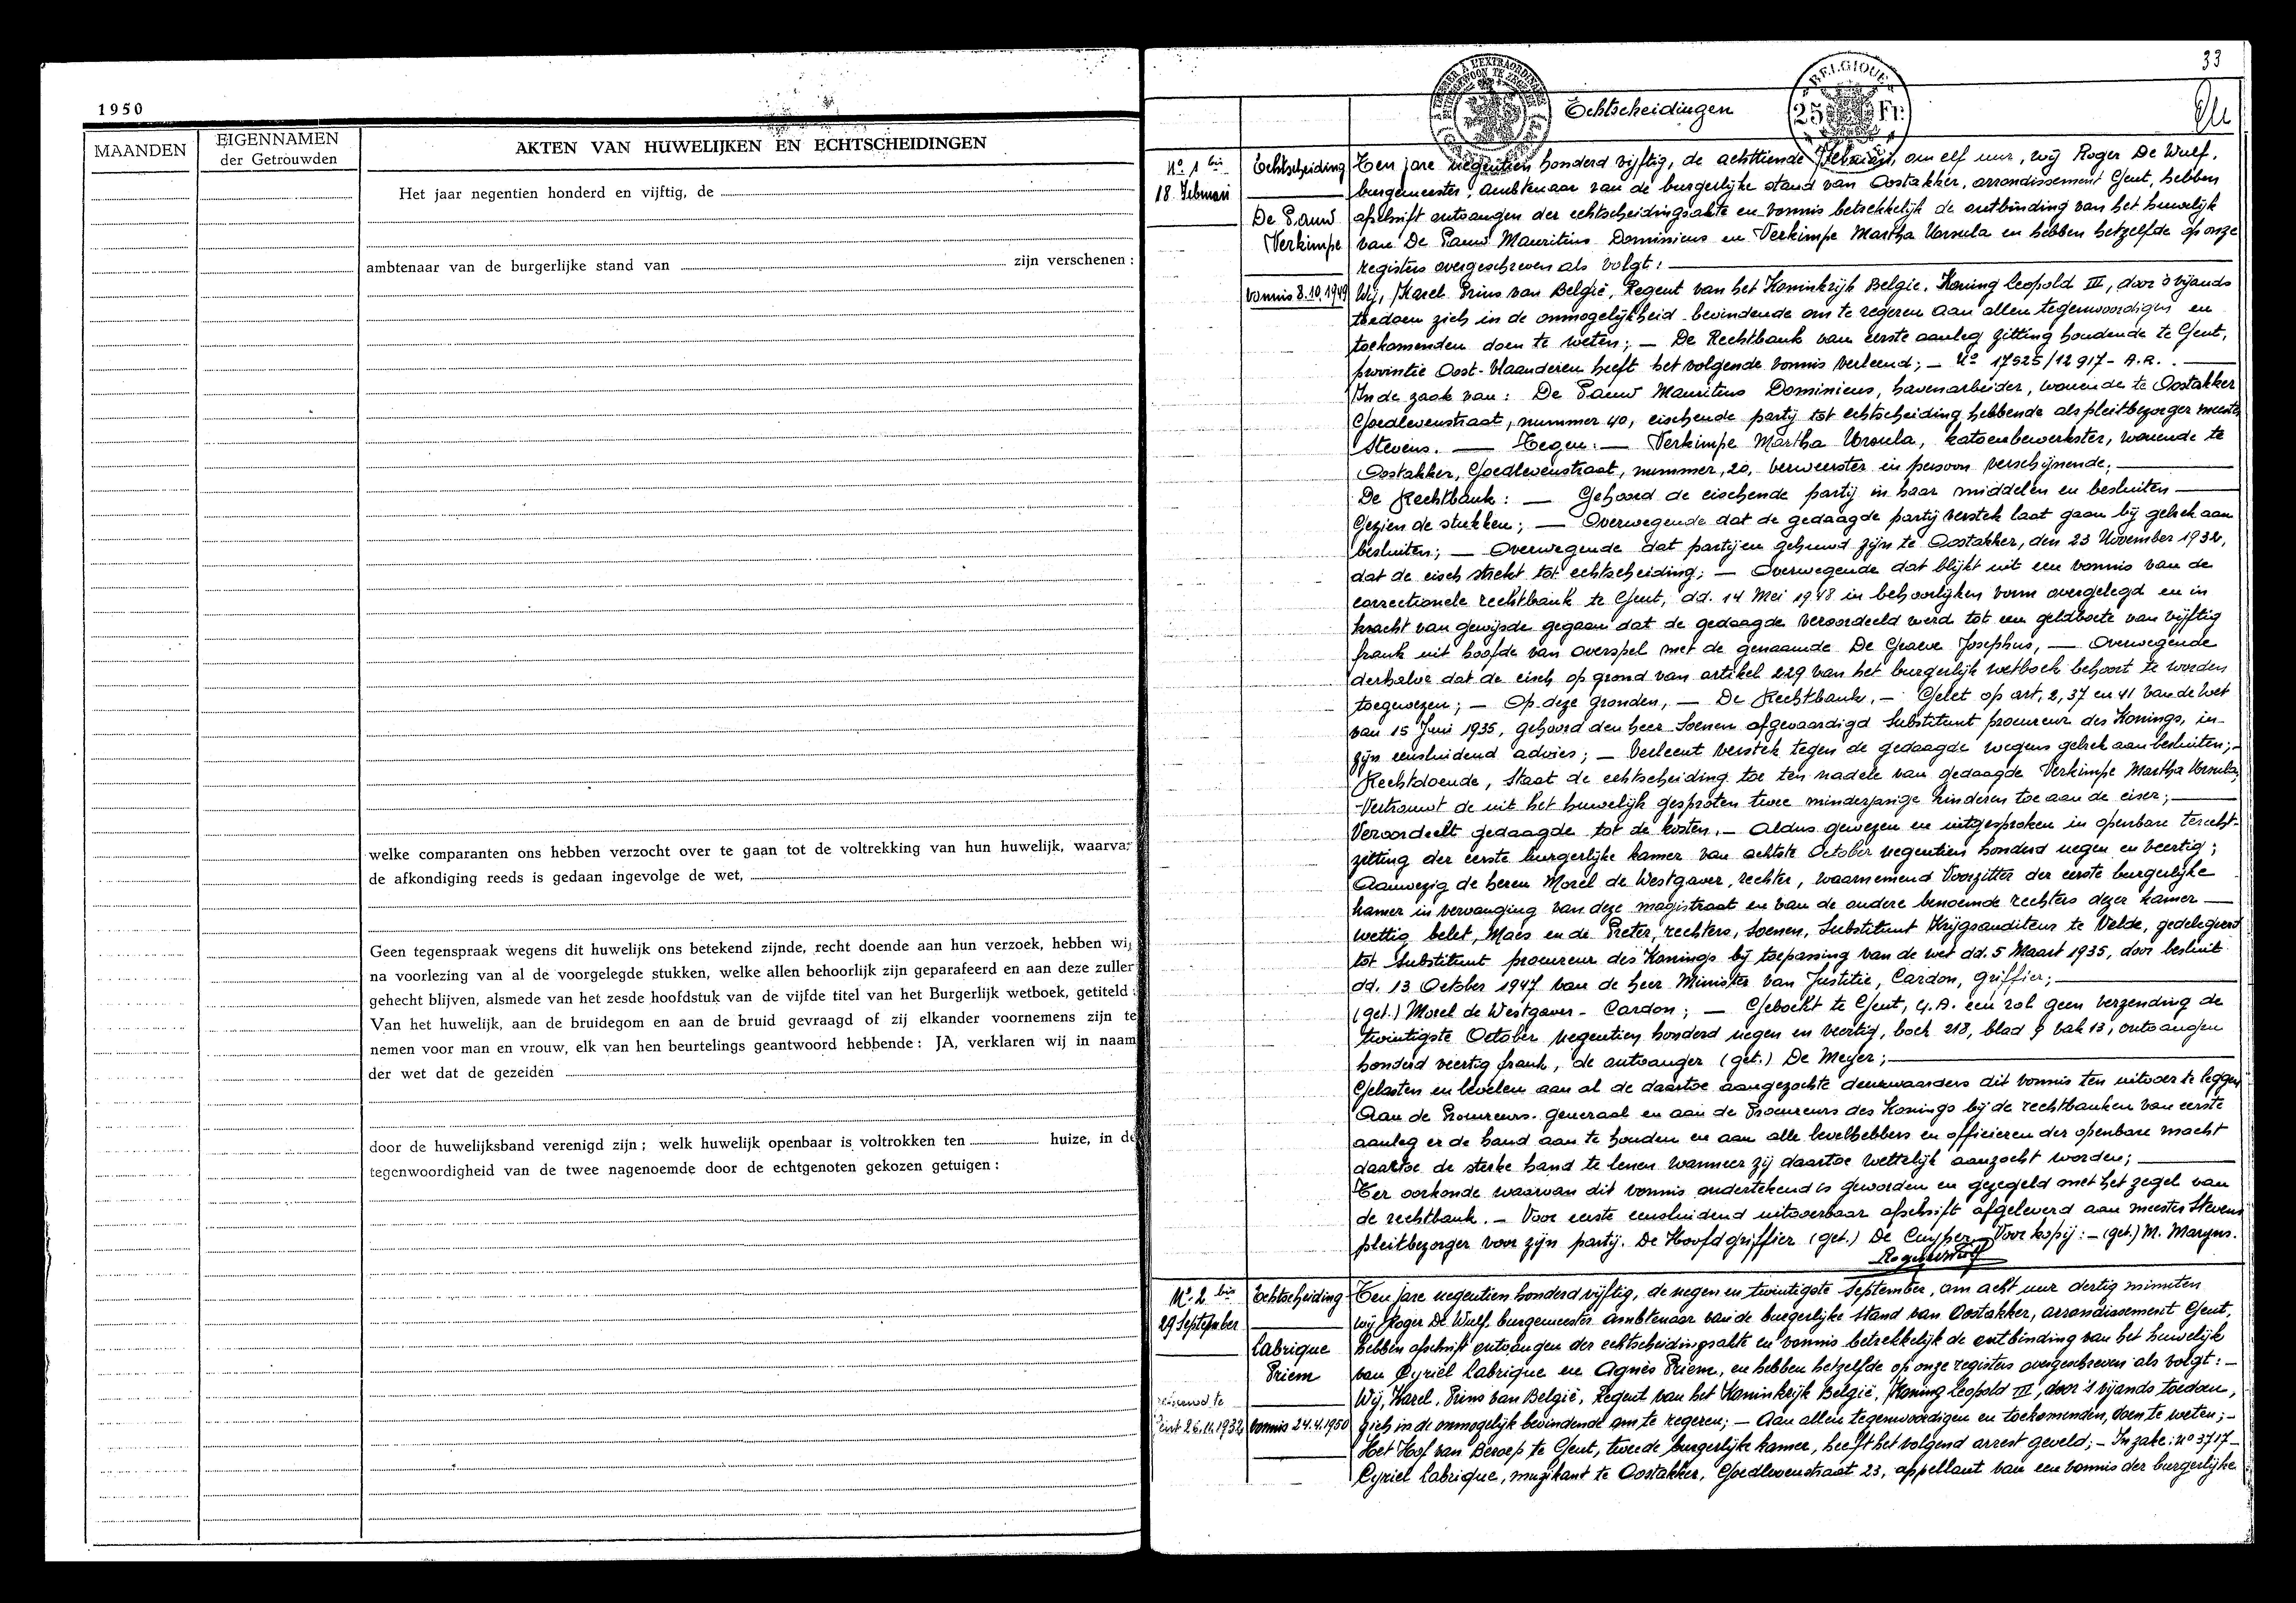 1950
MAANDEN
EIGENNAMEN
der Getrouwden
AKTEN VAN HUWELIJKEN EN ECHTSCHEIDINGEN
Het jaar negentien honderd en vijftig, de
ambtenaar van de burgerlijke stand van zijn verschenen :
welke comparanten ons hebben verzocht over te gaan tot de voltrekking van hun huwelijk, waarva
de afkondiging reeds is gedaan ingevolge de wet,
Geen tegenspraak wegens dit huwelijk ons betekend zijnde, recht doende aan hun verzoek, hebben wij
na voorlezing van al de voorgelegde stukken, welke allen behoorlijk zijn geparafeerd en aan deze zuller
gehecht blijven, alsmede van het zesde hoofdstuk van de vijfde titel van het Burgerlijk wetboek, getiteld :
Van het huwelijk, aan de bruidegom en aan de bruid gevraagd of zij elkander voornemens zijn te
nemen voor man en vrouw, elk van hen beurtelings geantwoord hebbende : JA, verklaren wij in naam
der wet dat de gezeiden
door de huwelijksband verenigd zijn ; welk huwelijk openbaar is voltrokken ten huize, in de
tegenwoordigheid van de twee nagenoemde door de echtgenoten gekozen getuigen :
33
BELGIQUE
25 Fr.
Echtscheidingen
No 1 bis
18 Februari
Echtscheiding
De Pauw
Verkimpe
Vonnis 8.10.1949
Ten jare negentien honderd vijftig, de achttiende Februari, om elf uur, wij Roger De Wulf,
burgemeester, ambtenaar van de burgerlijke stand van Oostakker, arrondissement Gent, hebben
afschrift ontvangen der echtscheidingsakte en vonnis betrekkelijk de ontbinding van het huwelijk
van De Pauw Mauritius Dominicus en Verkimpe Martha Ursula en hebben hetzelfde op onze
registers overgeschreven als volgt :
Wij, Karel Prins van België, Regent van het Koninkrijk Belgie. Koning Leopold III, door 's vijands
toedoen zich in de onmogelijkheid bevindende om te regeren aan allen tegenwoordigen en
toekomenden doen te weten ; — De Rechtbank van eerste aanleg zitting houdende te Gent,
provintie Oost-Vlaanderen heeft het volgende vonnis verleend ; — No 17525/12917 - A.R.
In de zaak van : De Pauw Mauritius Dominicus, havenarbeider, wonende te Oostakker
Goedlevenstraat, nummer 40, eischende partij tot echtscheiding hebbende als pleitbezorger meester
Stevens. — Tegen : — Verkimpe Martha Ursula, katoenbewerkster, wonende te
Oostakker, Goedlevenstraat, nummer, 20, verweerster in persoon verschijnende ;
De Rechtbank : — Gehoord de eischende partij in haar middelen en besluiten
Gezien de stukken ; — Overwegende dat de gedaagde partij verstek laat gaan bij gebrek aan
besluiten ; — Overwegende dat partijen gehuwd zijn te Oostakker, den 23 November 1932,
dat de eisch strekt tot echtscheiding ; — Overwegende dat blijkt uit een vonnis van de
correctionele rechtbank te Gent, dd. 14 Mei 1948 in behoorlijken vorm overgelegd en in
kracht van gewijsde gegaan dat de gedaagde veroordeeld werd tot een geldboete van vijftig
frank uit hoofde van overspel met de genaamde De Graeve Josephus, — Overwegende
derhalve dat de eisch op grond van artikel 229 van het burgerlijk wetboek behoort te worden
toegewezen ; — Op deze gronden, — De Rechtbank, — Gelet op art. 2, 37 en 41 van de wet
van 15 Juni 1935, gehoord den heer Soenen afgevaardigd Substituut procureur des Konings, in
zijn eensluidend advies ; — Verleent verstek tegen de gedaagde wegens gebrek aan besluiten ; —
Rechtdoende, Staat de echtscheiding toe ten nadele van gedaagde Verkimpe Martha Ursula,
Vertrouwt de uit het huwelijk gesproten twee minderjarige kinderen toe aan de eiser ;
Veroordeelt gedaagde tot de kosten. — Aldus gewezen en uitgesproken in openbare terecht-
zitting der eerste burgerlijke kamer van achtste October negentien honderd negen en veertig ;
Aanwezig de heren Morel de Westgaver, rechter, waarnemend Voorzitter der eerste burgerlijke
kamer in vervanging van deze magistraat en van de andere benoemde rechters dezer kamer
wettig belet, Maes en de Preter, rechters, Soenen, Substituut Krijgsauditeur te Velde, gedelegeerd
tot Substituut procureur des Konings bij toepassing van de wet dd. 5 Maart 1935, door besluit
dd. 13 October 1947 van de heer Minister van Justitie, Cardon, griffier ;
(get.) Morel de Westgaver - Cardon ; — Geboekt te Gent, 4. A. een rol geen verzending de
twintigste October negentien honderd negen en veertig, boek 218, blad 9 vak 13, ontvangen
honderd veertig frank, de ontvanger (get.) De Meyer ;
Gelasten en bevelen aan al de daartoe aangezochte deurwaarders dit vonnis ten uitvoer te leggen
Aan de Procureurs-generaal en aan de Procureurs des Konings bij de rechtbanken van eerste
aanleg er de hand aan te houden en aan alle bevelhebbers en officieren der openbare macht
daartoe de sterke hand te lenen wanneer zij daartoe wettelijk aanzocht worden ;
Ter oorkonde waarvan dit vonnis ondertekend is geworden en gezegeld met het zegel van
de rechtbank. — Voor eerste eensluidend uitvoerbaar afschrift afgeleverd aan meester Stevens
pleitbezorger voor zijn partij. De Hoofdgriffier (get.) De Cuyper — Voor kopij : — (get.) M. Maryns.
No 2 bis
29 September
Echtscheiding
Labrique
Priem
Gent 26.11.1932
Vonnis 24.4.1950
Ten jare negentien honderd vijftig, de negen en twintigste September, om acht uur dertig minuten
wij Roger De Wulf, burgemeester ambtenaar van de burgerlijke stand van Oostakker, arrondissement Gent,
hebben afschrift ontvangen der echtscheidingsakte en vonnis betrekkelijk de ontbinding van het huwelijk
van Cyriel Labrique en Agnès Priem, en hebben hetzelfde op onze registers overgeschreven als volgt : —
Wij, Karel, Prins van België, Regent van het Koninkrijk België, Koning Leopold III, door 's vijands toedoen,
zich in de onmogelijk bevindende om te regeren ; — Aan allen tegenwoordigen en toekomenden, doen te weten ; —
Het Hof van Beroep te Gent, tweede burgerlijke kamer, heeft het volgend arrest geveld ; — In zake : no 3717 —
Cyriel Labrique, muzikant te Oostakker, Goedlevenstraat 23, appellant van een vonnis der burgerlijke